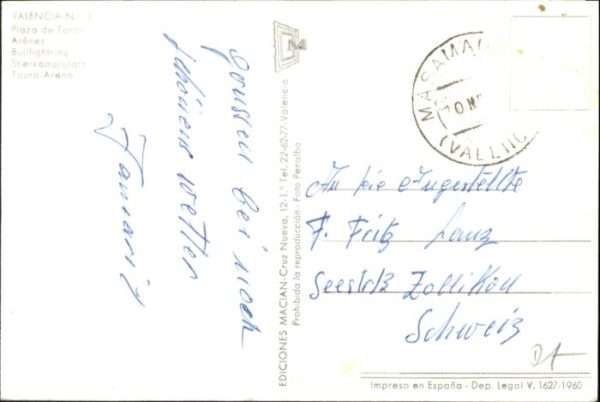 VALENCIA N.
Plaza de Toros
Arènes
Bullfighting
Stierkampfplatz
Taura-Arena
bei noch
schönem wetter
EDICIONES MACIAN-Cruz Nueva, 12-1.º Tel. 22-62-77-Valencia
Prohibida la reproducción - Foto Peralba
MASAMA
10 M
(VALEN
An die Angestellte
F. Fritz Lanz
Seestr Zollikon
Schweiz
Impreso en España - Dep. Legal V. 1627-1960